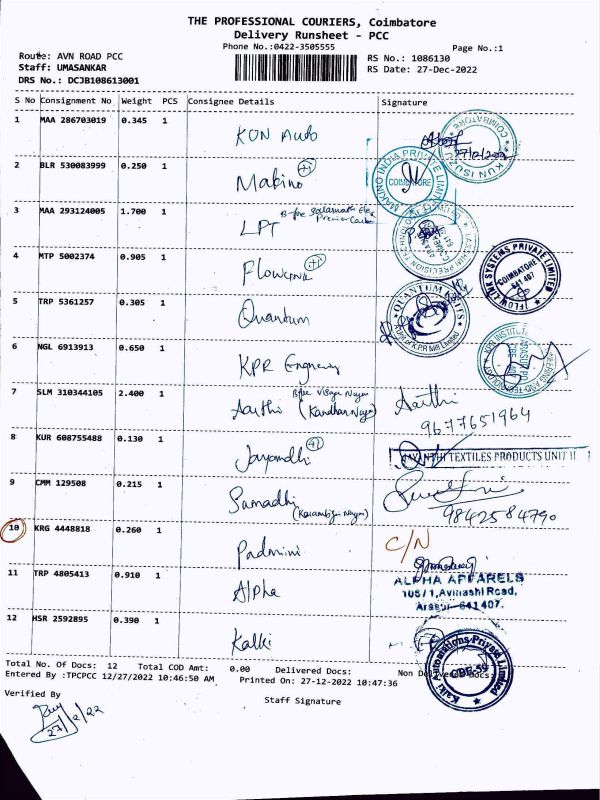 THE PROFESSIONAL COURIERS, Coimbatore
Delivery Runsheet - PCC
Phone No.:0422-3505555
Page No.:1
Route: AVN ROAD PCC
RS No.: 1086130
Staff: UMASANKAR
RS Date: 27-Dec-2022
DRS No.: DCJB108613001
S No Consignment No Weight PCS Consignee Details Signature
1 MAA 286703019 0.345 1 KUN Auto
COIMBATORE KUN ISUZU
2 BLR 530083999 0.250 1 Makino +1
MAKINO INDIA PRIVATE LIMITED COIMBATORE
3 MAA 293124005 1.700 1 LPT
LAKSHMI PRECISION TECHNOLOGIES LIMITED
4 MTP 5002374 0.905 1 Flowlink +1
FLOW LINK SYSTEMS PRIVATE LIMITED COIMBATORE 641 407
5 TRP 5361257 0.305 1 Quantum
QUANTUM KNITS
6 NGL 6913913 0.650 1 KPR Engineering
7 SLM 310344105 2.400 1 Aarthi (Kandhan Nagar) Aarthi
9677651964
8 KUR 608755488 0.130 1 Jayandhi +2
JAYANTHI TEXTILES PRODUCTS UNIT II
9 CMM 129508 0.215 1 Samadhi
9842584790
10 KRG 4448818 0.260 1 Padmini C/N
11 TRP 4805413 0.910 1 Alpha
ALPHA APPARELS
108/1, Avinashi Road,
Arasur-641407.
12 HSR 2592895 0.390 1 Kalki
Kalki Automations Private Limited CBE-59
Total No. Of Docs: 12 Total COD Amt: 0.00 Delivered Docs: Non Delivered Docs:
Entered By :TPCPCC 12/27/2022 10:46:50 AM Printed On: 27-12-2022 10:47:36
Verified By
Staff Signature
27/12/22